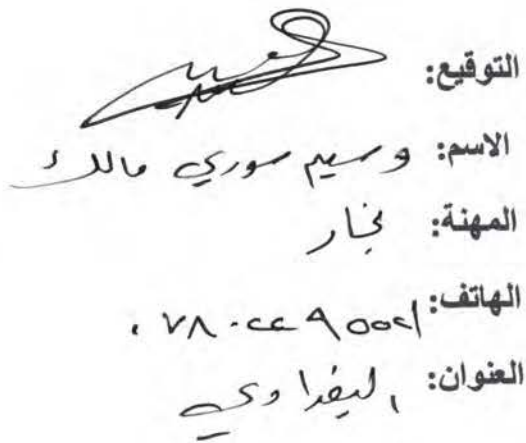 التوقيع:
الاسم: وسيم سوري مالك
المهنة: نجار
الهاتف:
العنوان: البغداوي